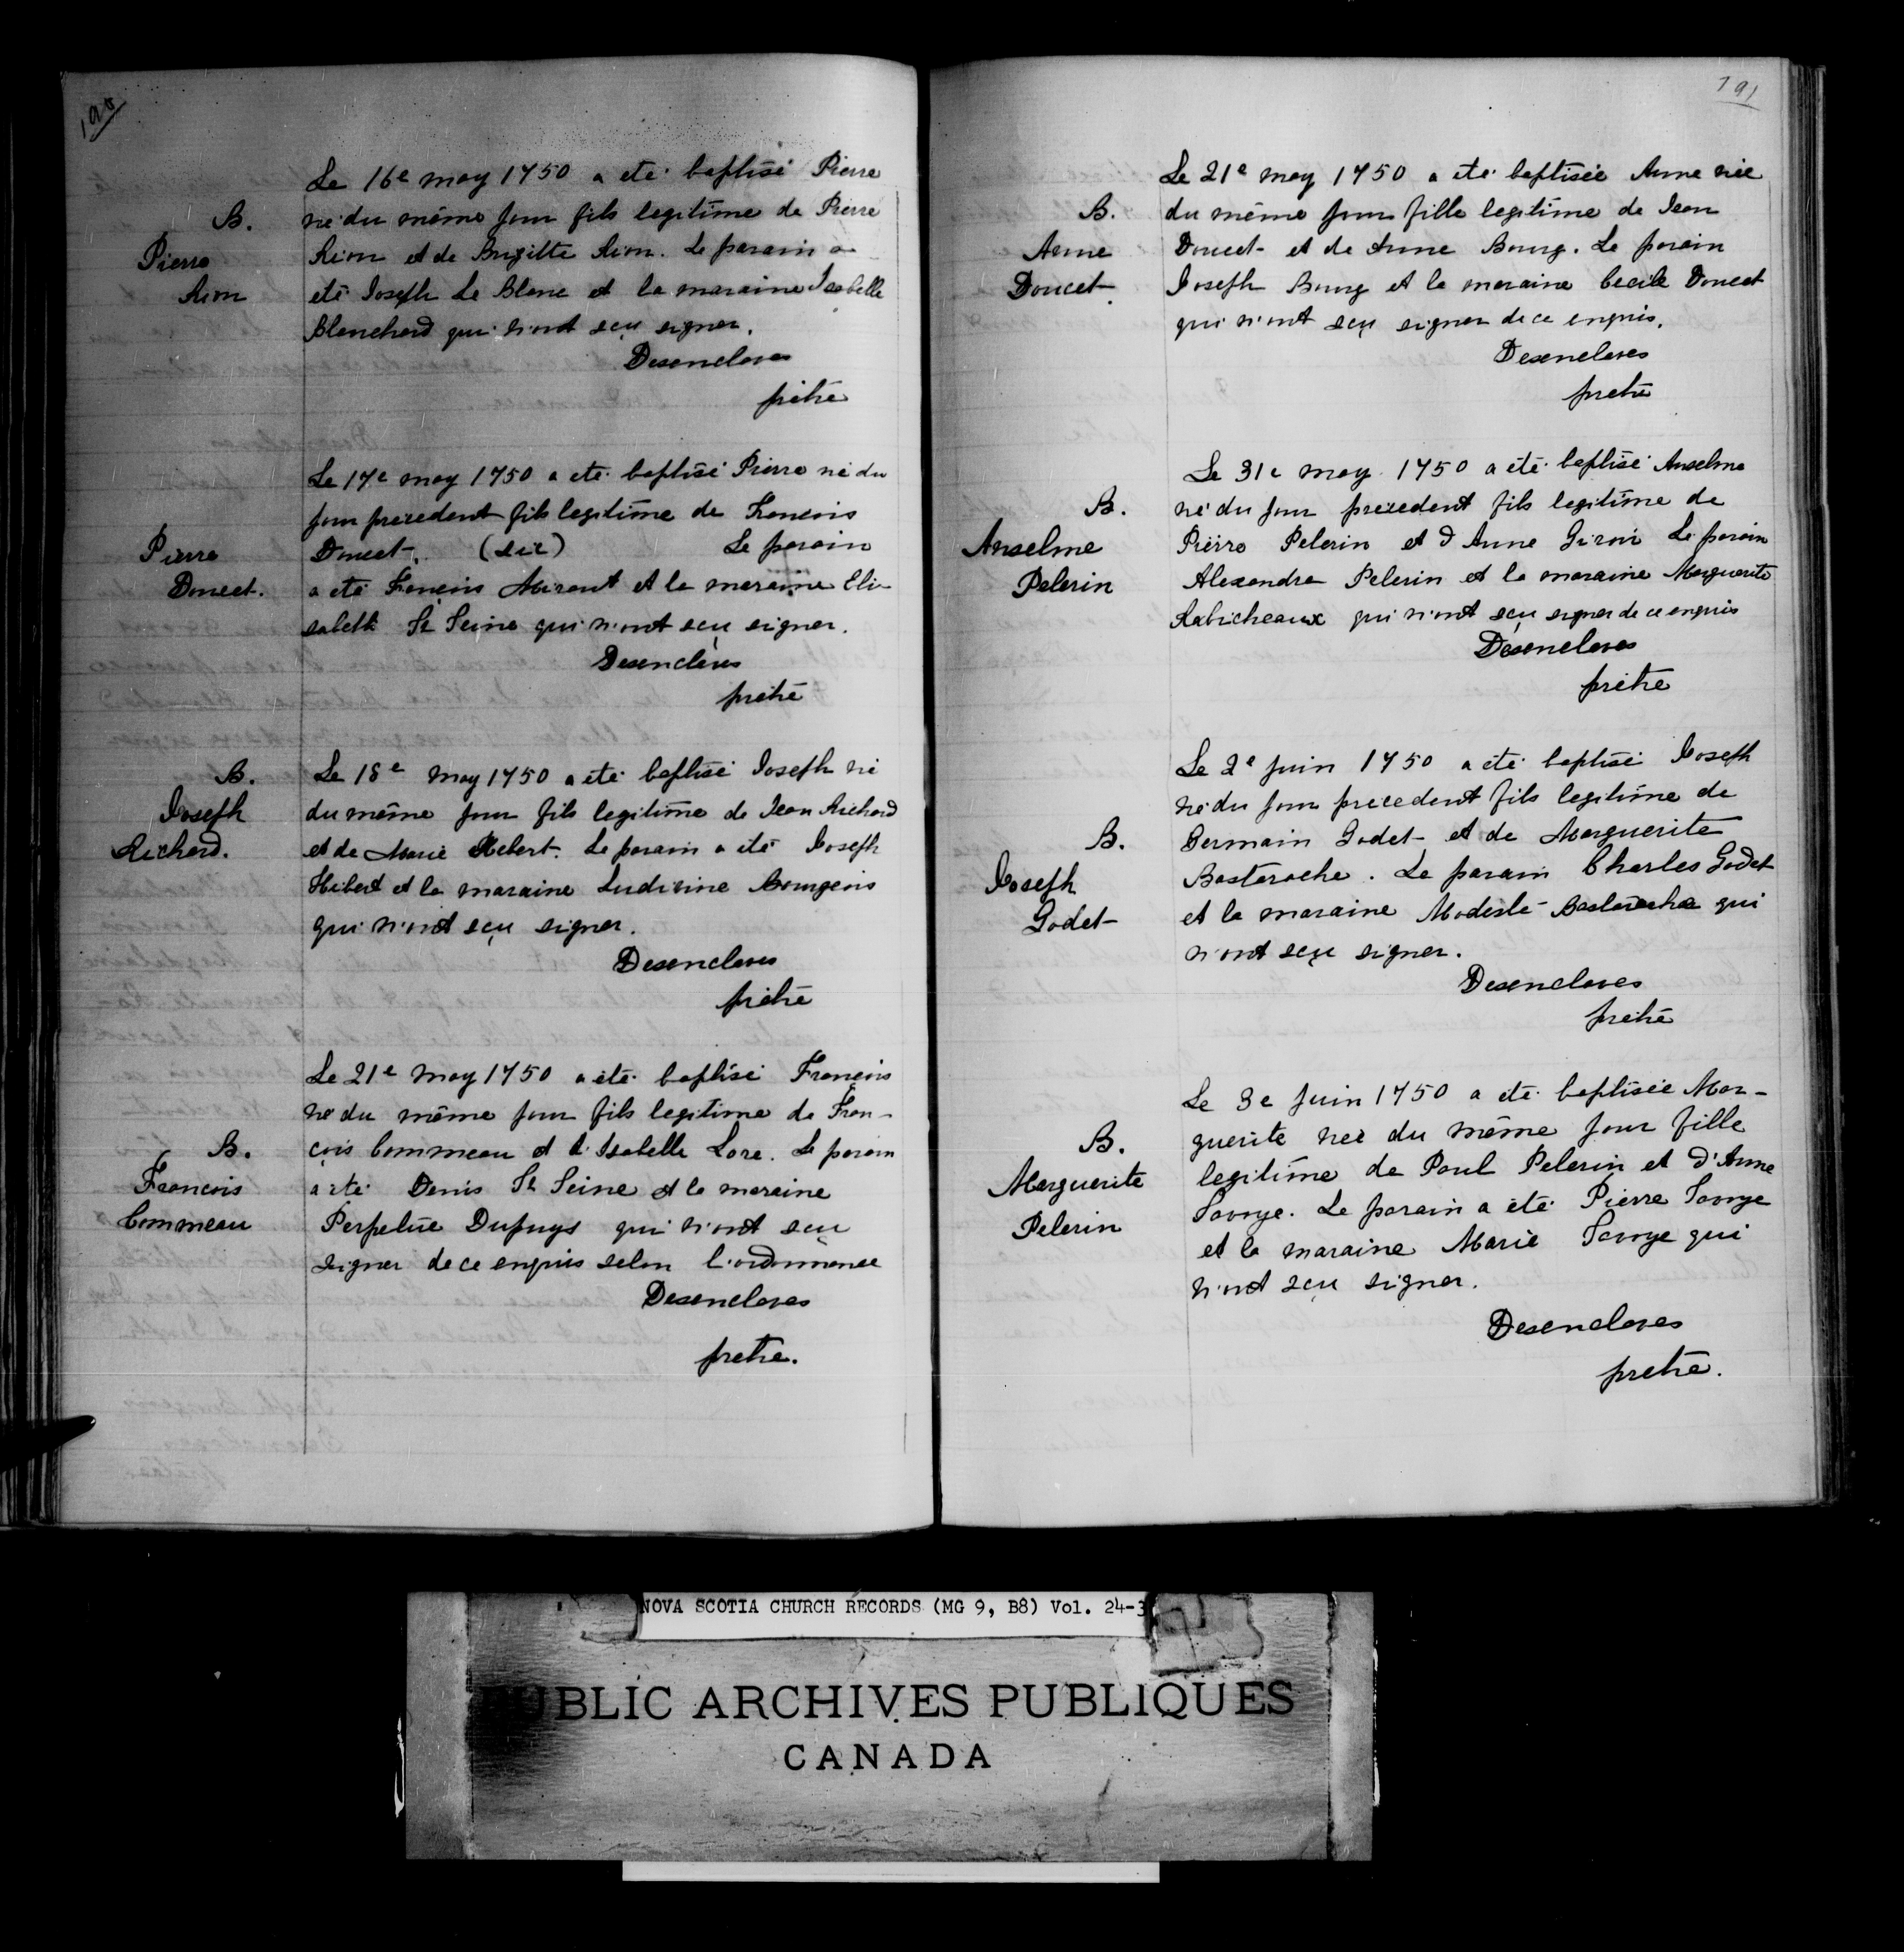 190
Le 16e may 1750 a eté baptisé Pierre
B. né du même jour fils legitime de Pierre
Pierre Rion et de Brigitte Rion. Le parain a
Rion eté Joseph Le Blanc et la maraine Isabelle
Blanchard qui n'ont sçu signer.
Desenclaves
prêtre
Le 17e may 1750 a eté baptisé Pierre né du
jour precedent fils legitime de Francois
Pierre Doucet. (sic) Le parain
Doucet. a eté François Mirant et la maraine Eli-
sabeth St Seine qui n'ont sçu signer.
Desenclaves
prêtre
B. Le 18e may 1750 a eté baptisé Joseph né
Joseph du même jour fils legitime de Jean Richard
Richard. et de Marie Hebert. Le parain a eté Joseph
Hébert et la maraine Ludivine Bourgeois
qui n'ont sçu signer.
Desenclaves
prêtre
Le 21e may 1750 a eté baptisé François
né du même jour fils legitime de Fran-
B. çois Commeau et d'Isabelle Lore. Le parain
Francois a eté Denis St Seine et la maraine
Commeau Perpetue Dupuys qui n'ont sçu
signer de ce enquis selon l'ordonnance
Desenclaves
pretre.
191
Le 21e may 1750 a eté baptisée Anne née
B. du même jour fille legitime de Jean
Anne Doucet et de Anne Bourg. Le parain
Doucet Joseph Bourg et la maraine Cecile Doucet
qui n'ont sçu signer de ce enquis.
Desenclaves
pretre
Le 31e may 1750 a été baptisé Anselme
B. né du jour precedent fils legitime de
Anselme Pierre Pelerin et d'Anne Giroir Le parain
Pelerin Alexandre Pelerin et la maraine Marguerite
Rabicheaux qui n'ont sçu signer de ce enquis
Desenclaves
prêtre
Le 2e juin 1750 a eté baptisé Joseph
né du jour precedent fils legitime de
B. Germain Godet et de Marguerite
Joseph Bastarache. Le parain Charles Godet
Godet et la maraine Modeste Bastarache qui
n'ont sçu signer.
Desenclaves
pretre
Le 3e juin 1750 a eté baptisée Mar-
B. guerite née du même jour fille
Marguerite legitime de Paul Pelerin et d'Anne
Pelerin Savoye. Le parain a eté Pierre Savoye
et la maraine Marie Savoye qui
n'ont sçu signer.
Desenclaves
pretre.
NOVA SCOTIA CHURCH RECORDS (MG 9, B8) Vol. 24-3
PUBLIC ARCHIVES PUBLIQUES
CANADA